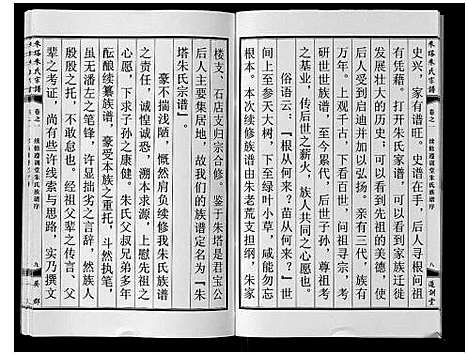 朱塔朱氏宗譜
卷之一
续修遵训堂朱氏族谱序
八
遵訓堂
史，家有谱旺。史谱在手，后人寻根问祖
有凭藉。打开朱氏家谱，可看到家族迁徙
历史；可以感受到先祖的美德，使
后人受到启迪并加以弘扬。亲有三代，族有
万年。上观千古，下看百世，问祖寻宗，考
研世世族谱，至今累代，后世子孙，尊享祖
之基业，传后世之薪火，族人共同之心愿也。
俗语云：『根从何来？苗从何去？』
间上至参天大树，下至绿叶小草，咸能勿忘
根本。本次续修族谱由朱老荒支担纲，朱家
楼支、石店支归宗合修。鉴于朱塔是君宝公
后人主要居集地，故我们的族谱定名为『朱
塔朱氏宗谱』。
毫不犹豫，慨然肩负续修我朱氏族谱
之责任，诚惶诚恐，溯本求源，上慰先祖之
心愿，下求子孙之永盛。朱氏父叔兄弟多年
酝酿续纂族谱，毫受本族之重托，斗然执笔，
虽无潘左之笔锋，许显拙劣之言辞，然族人
殷殷之托，不敢负也。经祖父辈之传言、父
辈之考证，尚有些许线索与思路，实乃撰文
朱塔朱氏宗譜
卷之一
续修遵训堂朱氏族谱序
九